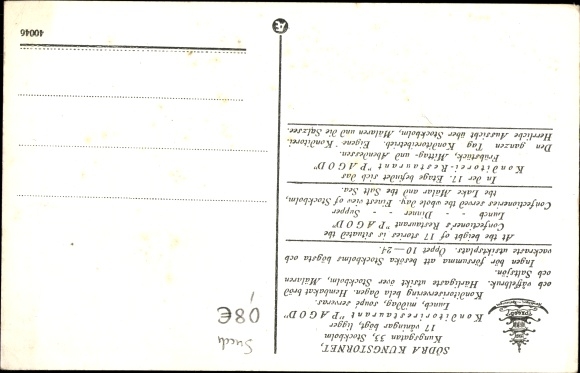 SÖDRA KUNGSTORNET,
Kungsgatan 33, Stockholm
17 våningar högt, ligger
Konditorirestaurant "PAGOD"
Lunch, middag, soupé serveras.
Konditoriservering hela dagen. Hembakat bröd
och våffelbruk. Härligaste utsikt över Stockholm, Mälaren
och Saltsjön.
Ingen bör försumma att besöka Stockholms högsta och
vackraste utsiktsplats. Öppet 10—24.
At the height of 17 stories is situated the
Confectioner's Restaurant "PAGOD"
Lunch - - Dinner - - Supper
Confectioneries served the whole day. Finest view of Stockholm,
the Lake Mälar and the Salt Sea.
In der 17. Etage befindet sich das
Konditorei-Restaurant "PAGOD"
Frühstück, Mittag- und Abendessen.
Den ganzen Tag Konditoreibetrieb. Eigene Konditorei.
Herrliche Aussicht über Stockholm, Mälaren und die Salzsee.
Æ
40046
08€